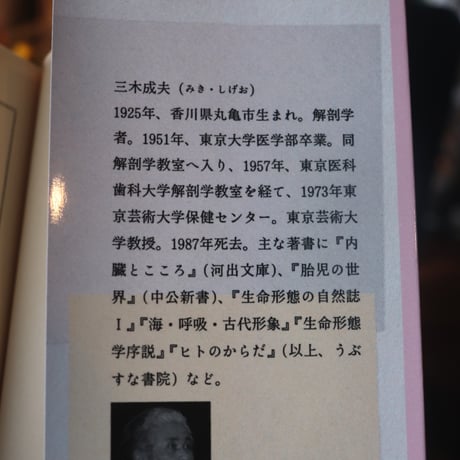 三木成夫（みき・しげお）
1925年、香川県丸亀市生まれ。解剖学
者。1951年、東京大学医学部卒業。同
解剖学教室へ入り、1957年、東京医科
歯科大学解剖学教室を経て、1973年東
京芸術大学保健センター。東京芸術大
学教授。1987年死去。主な著書に『内
臓とこころ』（河出文庫）、『胎児の世
界』（中公新書）、『生命形態の自然誌
Ⅰ』『海・呼吸・古代形象』『生命形態
学序説』『ヒトのからだ』（以上、うぶ
すな書院）など。